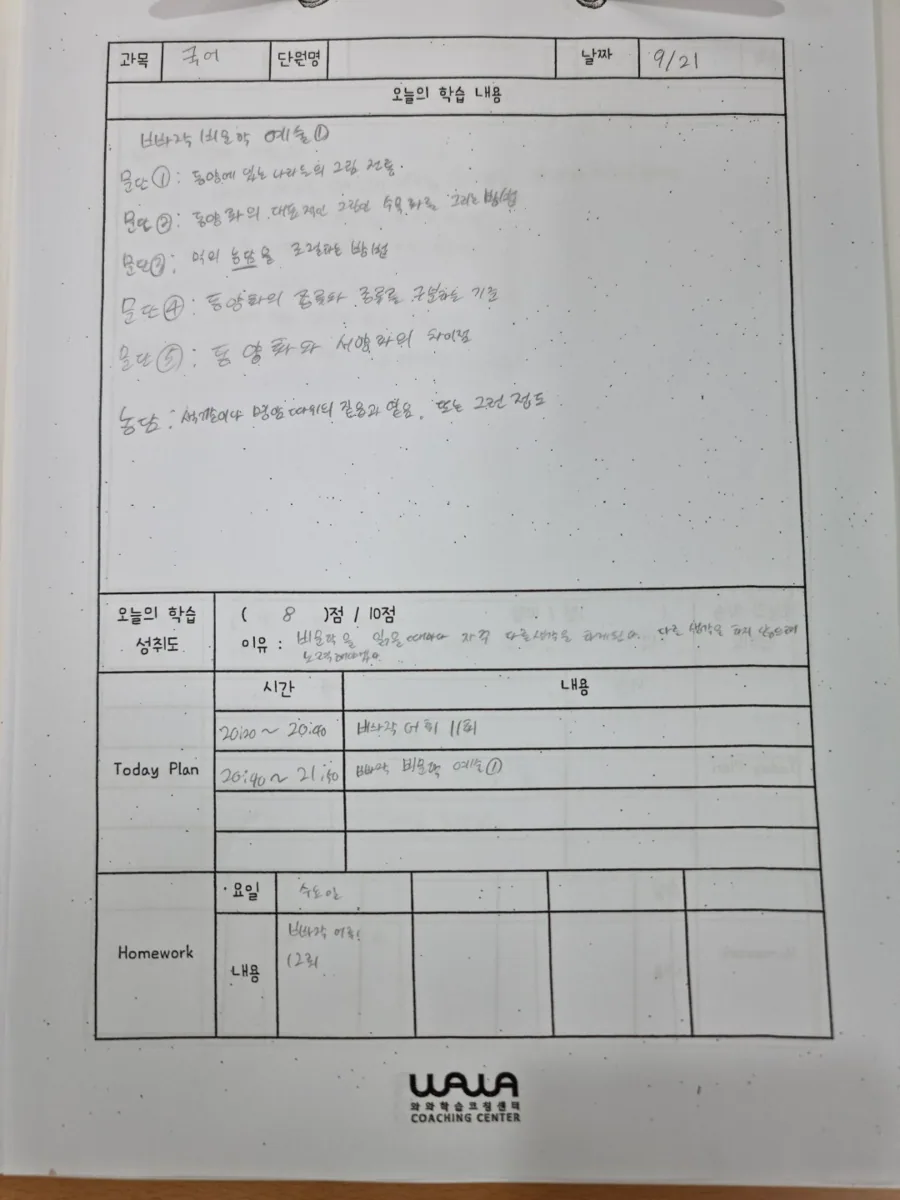 과목 국어 단원명 날짜 9/21
오늘의 학습 내용
빠작 비문학 예술①
문단①: 동양에 있는 나라들의 그림 전통.
문단②: 동양화의 대표적인 그림인 수묵화를 그리는 방법
문단③: 먹의 농담을 조절하는 방법
문단④: 동양화의 종류와 종류를 구분하는 기준
문단⑤: 동양화와 서양화의 차이점
농담: 색깔이나 명암 따위의 짙음과 옅음, 또는 그런 정도
오늘의 학습 성취도
( 8 )점 / 10점
이유: 비문학을 읽을때마다 자주 다른생각을 하게된다. 다른 생각을 하지 않으려
노력해야겠다.
시간 내용
20:20 ~ 20:40 빠작 어휘 11회
Today Plan
20:40 ~ 21:50 빠작 비문학 예술①
요일 수요일
Homework
내용
빠작 어휘
12회
WAWA
와와학습코칭센터
COACHING CENTER